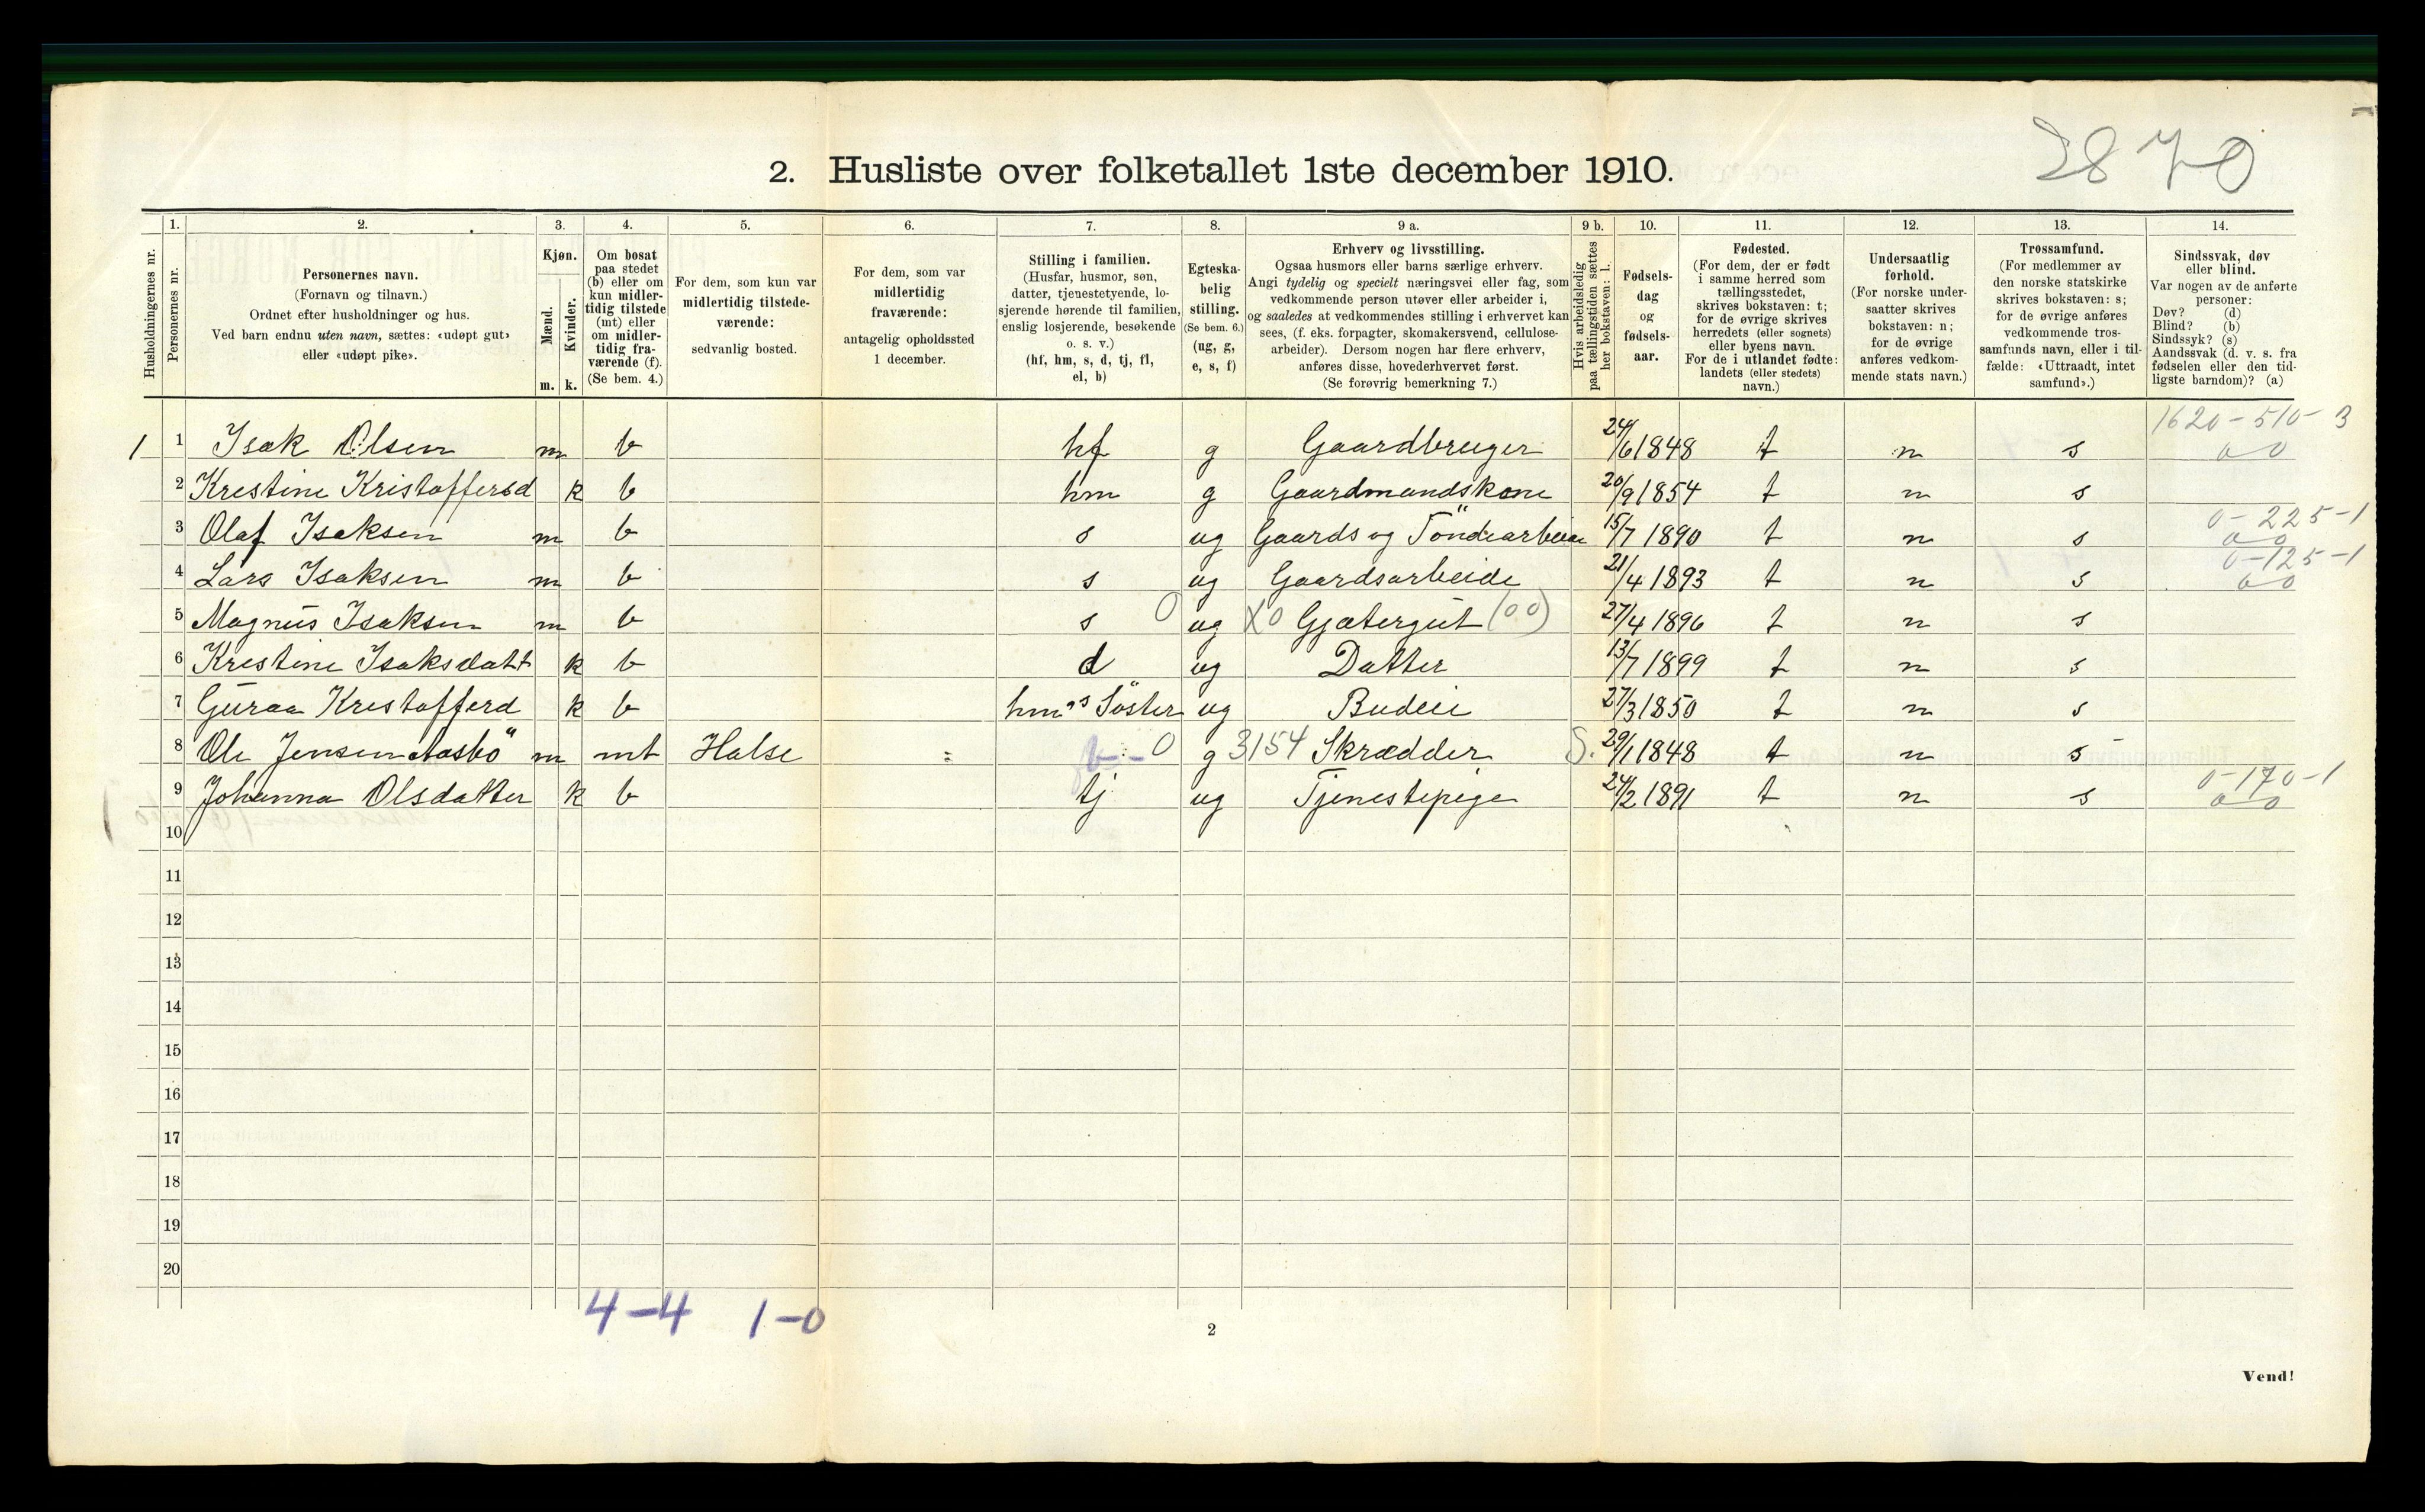 2870
2. Husliste over folketallet 1ste december 1910.
Husholdningernes nr.
1.
Personernes nr.
2.
Personernes navn.
(Fornavn og tilnavn.)
Ordnet efter husholdninger og hus.
Ved barn endnu uten navn, sættes: «udøpt gut»
eller «udøpt pike».
3.
Kjøn.
Mænd.
Kvinder.
m. k.
4.
Om bosat
paa stedet
(b) eller om
kun midler-
tidig tilstede
(mt) eller
om midler-
tidig fra-
værende (f).
(Se bem. 4.)
5.
For dem, som kun var
midlertidig tilstede-
værende:
sedvanlig bosted.
6.
For dem, som var
midlertidig
fraværende:
antagelig opholdssted
1 december.
7.
Stilling i familien.
(Husfar, husmor, søn,
datter, tjenestetyende, lo-
sjerende hørende til familien,
enslig losjerende, besøkende
o. s. v.)
(hf, hm, s, d, tj, fl,
el, b)
8.
Egteska-
belig
stilling.
(Se bem. 6.)
(ug, g,
e, s, f)
9 a.
Erhverv og livsstilling.
Ogsaa husmors eller barns særlige erhverv.
Angi tydelig og specielt næringsvei eller fag, som
vedkommende person utøver eller arbeider i,
og saaledes at vedkommendes stilling i erhvervet kan
sees, (f. eks. forpagter, skomakersvend, cellulose-
arbeider). Dersom nogen har flere erhverv,
anføres disse, hovederhvervet først.
(Se forøvrig bemerkning 7.)
9 b.
Hvis arbeidsledig
paa tællingstiden sættes
her bokstaven: l.
10.
Fødsels-
dag
og
fødsels-
aar.
11.
Fødested.
(For dem, der er født
i samme herred som
tællingsstedet,
skrives bokstaven: t;
for de øvrige skrives
herredets (eller sognets)
eller byens navn.
For de i utlandet fødte:
landets (eller stedets)
navn.)
12.
Undersaatlig
forhold.
(For norske under-
saatter skrives
bokstaven: n;
for de øvrige
anføres vedkom-
mende stats navn.)
13.
Trossamfund.
(For medlemmer av
den norske statskirke
skrives bokstaven: s;
for de øvrige anføres
vedkommende tros-
samfunds navn, eller i til-
fælde: «Uttraadt, intet
samfund».)
14.
Sindssvak, døv
eller blind.
Var nogen av de anførte
personer:
Døv? (d)
Blind? (b)
Sindssyk? (s)
Aandssvak (d. v. s. fra
fødselen eller den tid-
ligste barndom)? (a)
1620-510-3
1 1 Isak Olsen m b hf g Gaardbruger 24/6 1848 t n s 00
2 Krestine Kristoffersd k b hm g Gaardmandskone 20/9 1854 t n s
0-225-1
3 Olaf Isaksen m b s ug Gaards og Töndearbeide 15/7 1890 t n s 00
0-125-1
4 Lars Isaksen m b s ug Gaardsarbeide 21/4 1893 t n s 00
5 Magnus Isaksen m b s 0 ug X0 Gjætergut (00) 27/4 1896 t n s
6 Krestine Isaksdatt k b d ug Datter 13/7 1899 t n s
7 Guraa Kristofferd k b hms Söster ug Budeie 27/3 1850 t n s
8 Ole Jensen Aasbö m mt Halse b 0 g 3154 Skrædder S. 29/1 1848 t n s
0-170-1
9 Johanna Olsdatter k b tj ug Tjenestepige 24/2 1891 t n s 00
10
11
12
13
14
15
16
17
18
19
20
4-4 1-0
2
Vend!